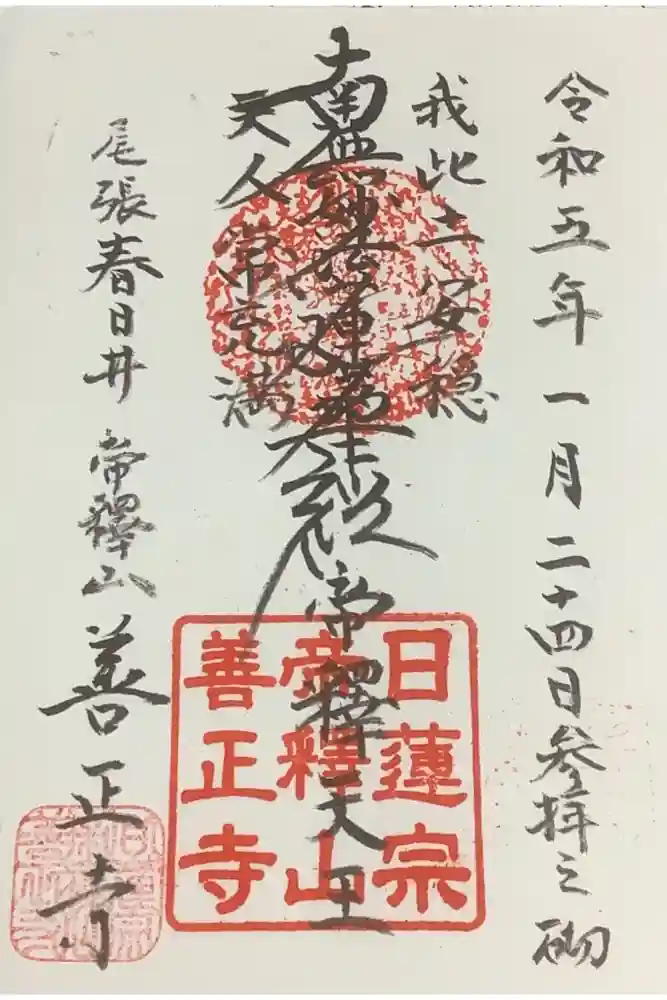 令和五年一月二十四日参拝之砌
我此土安穏
南無妙法蓮華経 帝釋天王
天人常充満
尾張春日井 帝釋山 善正寺
日蓮宗
帝釋山
善正寺